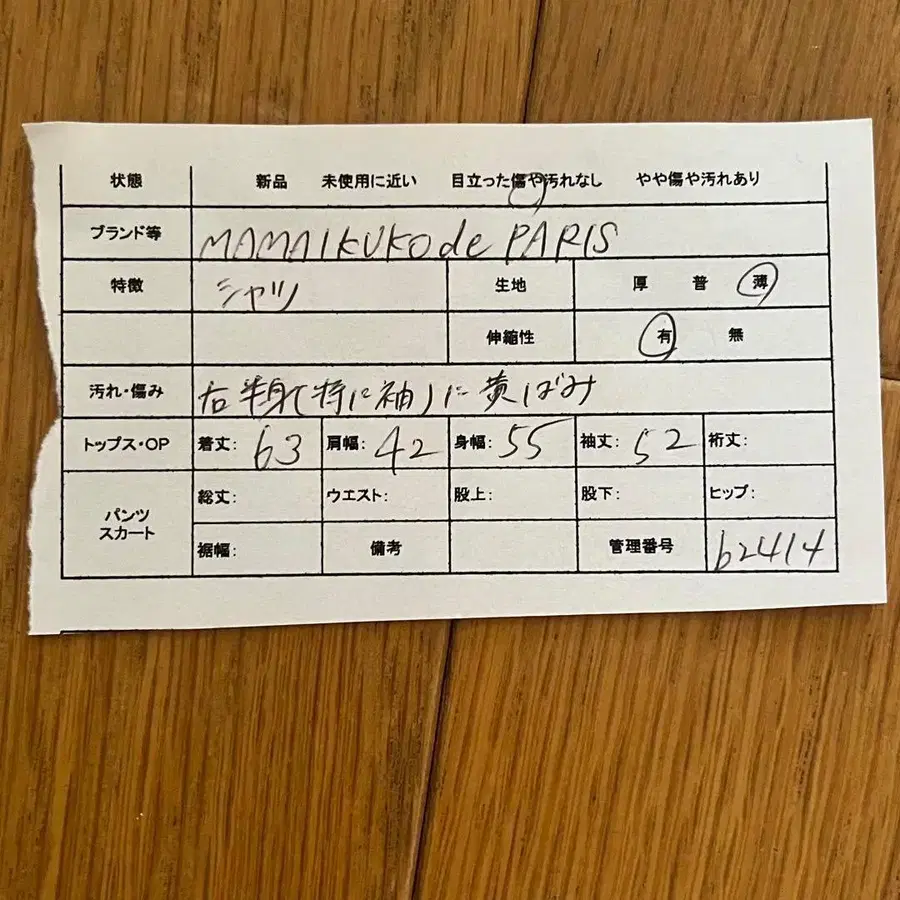 状態 新品 未使用に近い 目立った傷や汚れなし やや傷や汚れあり
ブランド等 MAMAIKUKO de PARIS
特徴 シャツ 生地 厚 普 薄
伸縮性 有 無
汚れ・傷み 右半身(特に袖)に黄ばみ
トップス・OP 着丈: 63 肩幅: 42 身幅: 55 袖丈: 52 裄丈:
パンツ スカート 総丈: ウエスト: 股上: 股下: ヒップ:
裾幅: 備考 管理番号 b2414